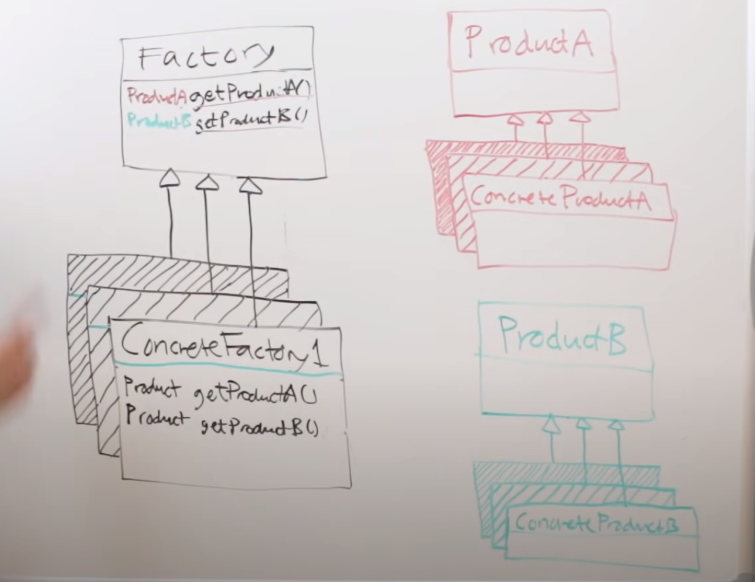 Factory
ProductA getProductA()
ProductB getProductB()
ConcreteFactory1
Product getProductA()
Product getProductB()
ProductA
ConcreteProductA
ProductB
ConcreteProductB